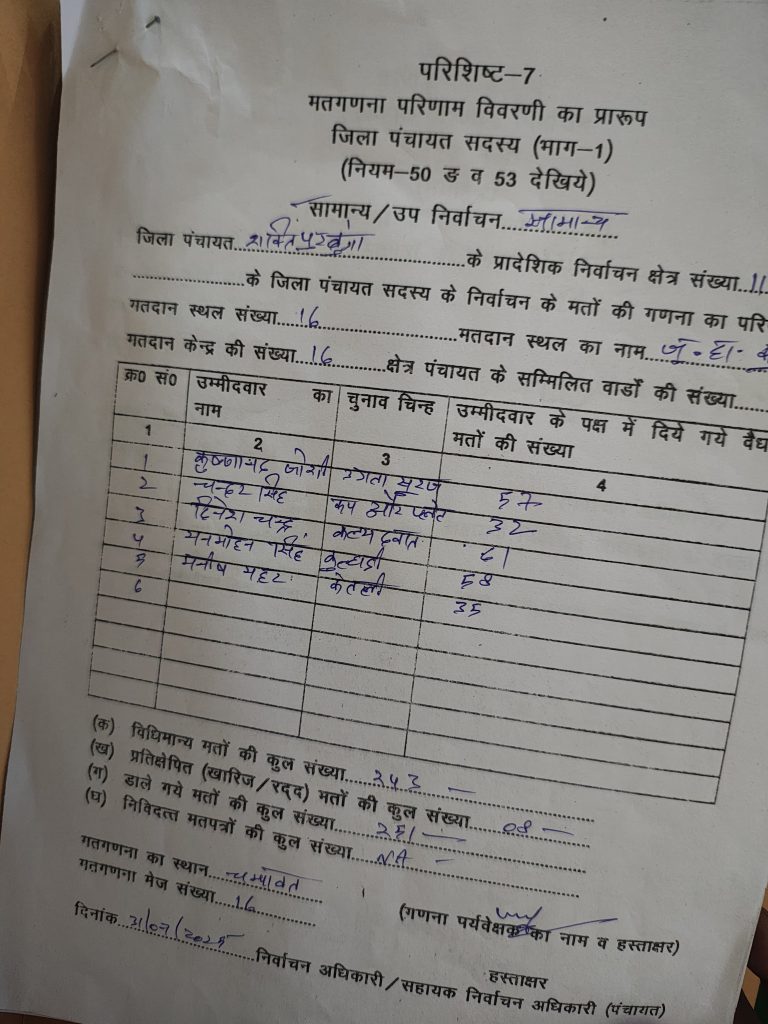 परिशिष्ट–7
मतगणना परिणाम विवरणी का प्रारूप
जिला पंचायत सदस्य (भाग–1)
(नियम–50 ङ व 53 देखिये)
सामान्य/उप निर्वाचन....सामान्य
जिला पंचायत..शक्तिपुरबुंगा....के प्रादेशिक निर्वाचन क्षेत्र संख्या..11
....के जिला पंचायत सदस्य के निर्वाचन के मतों की गणना का परि
गतदान स्थल संख्या....16....मतदान स्थल का नाम..जू.हा.
गतदान केन्द्र की संख्या..16....क्षेत्र पंचायत के सम्मिलित वार्डो की संख्या....
क्र0 सं0 उम्मीदवार का नाम चुनाव चिन्ह उम्मीदवार के पक्ष में दिये गये वैध मतों की संख्या
1 2 3 4
1 कृष्णानन्द जोशी उगता सूरज 57
2 चन्दर सिंह कप और प्लेट 32
3 दिनेश चन्द्र कलम दवात 61
4 मनमोहन सिंह कुल्हाड़ी 58
5 मनीष महर केतली 35
6
(क) विधिमान्य मतों की कुल संख्या....243
(ख) प्रतिक्षेपित (खारिज/रद्द) मतों की कुल संख्या....08
(ग) डाले गये मतों की कुल संख्या....251
(घ) निविदत्त मतपत्रों की कुल संख्या....NA
गतगणना का स्थान....चम्पावत
गतगणना मेज संख्या....16
(गणना पर्यवेक्षक का नाम व हस्ताक्षर)
दिनांक..31/07/2025
हस्ताक्षर
निर्वाचन अधिकारी/सहायक निर्वाचन अधिकारी (पंचायत)